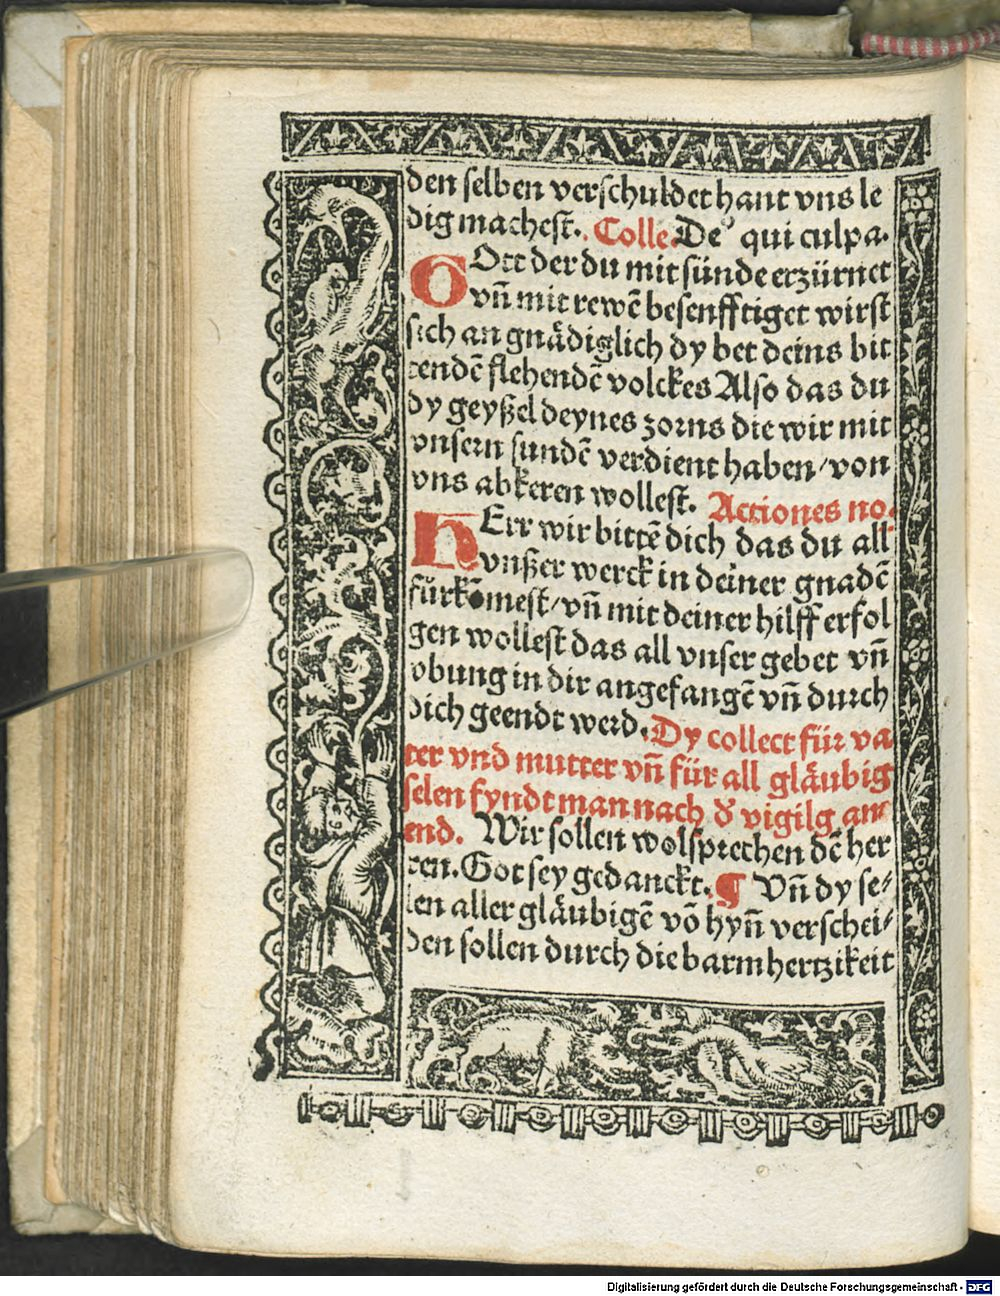 den selben verschuldet hant vns le
dig machest. Colle. De⁹ qui culpa.
GOtt der du mit sünde erzürnet
vn̄ mit rewē besenfftiget wirst
sich an gnädiglich dy bet deins bit
tendē flehendē volckes Also das du
dy geyßel deynes zorns die wir mit
vnsern sundē verdient haben/von
vns abkeren wollest. Actiones no.
HErr wir bittē dich das du all
vnßer werck in deiner gnadē
fürkōmest/vn̄ mit deiner hilff erfol
gen wollest das all vnser gebet vn̄
vbung in dir angefangē vn̄ durch
dich geendt werd. Dy collect für va
ter vnd mutter vn̄ für all gläubig
selen fyndt man nach d̕ vigilg am
end. Wir sollen wolsprechen dē her
ren. Got sey gedanckt. ¶ Vn̄ dy se⸗
len aller gläubigē vō hyn̄ verschei⸗
den sollen durch die barmhertzikeit
Digitalisierung gefördert durch die Deutsche Forschungsgemeinschaft - DFG